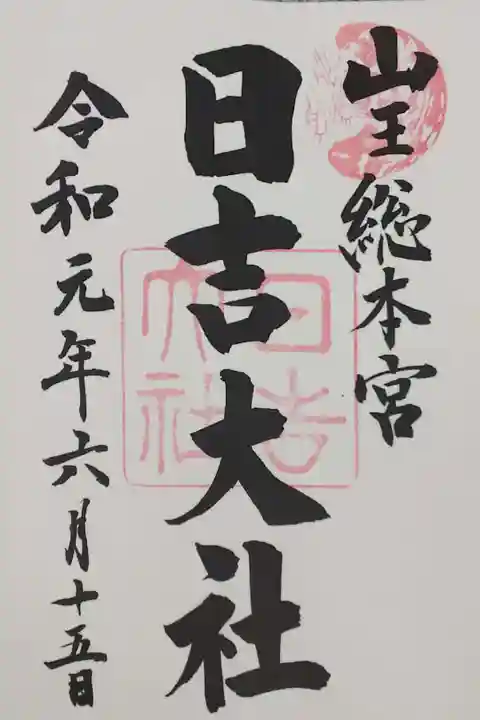 山王総本宮
日吉大社
令和元年六月十五日
日吉
大社